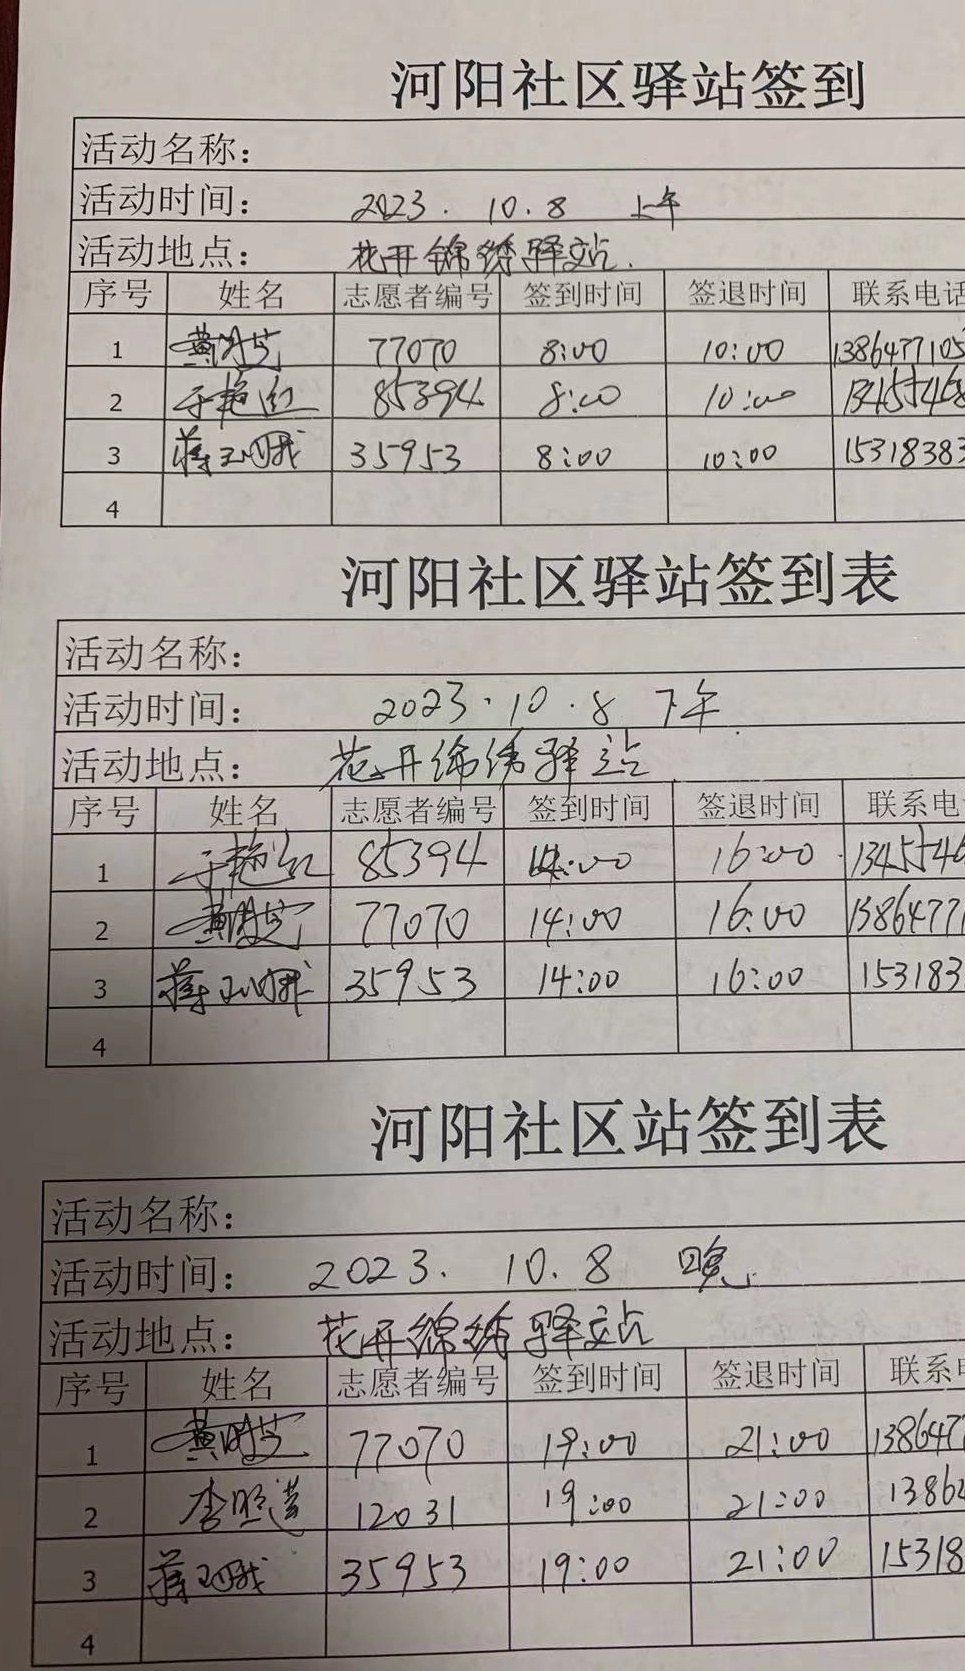 河阳社区驿站签到
活动名称：
活动时间： 2023. 10.8 上午
活动地点： 花开锦绣驿站.
序号 姓名 志愿者编号 签到时间 签退时间 联系电话
1 77070 8:00 10:00 1386477105
2 于艳红 85394 8:00 10:00 13455468
3 35953 8:00 10:00 15318383
4
河阳社区驿站签到表
活动名称：
活动时间： 2023.10.8 下午
活动地点： 花开绵绣驿站
序号 姓名 志愿者编号 签到时间 签退时间 联系电
1 于艳红 85394 14:00 16:00 1345546
2 77070 14:00 16:00 1386477
3 35953 14:00 16:00 153183
4
河阳社区站签到表
活动名称：
活动时间： 2023. 10.8 晚.
活动地点： 花开绵绣驿站
序号 姓名 志愿者编号 签到时间 签退时间 联系
1 77070 19:00 21:00 138647
2 12031 19:00 21:00 1386
3 35953 19:00 21:00 15318
4